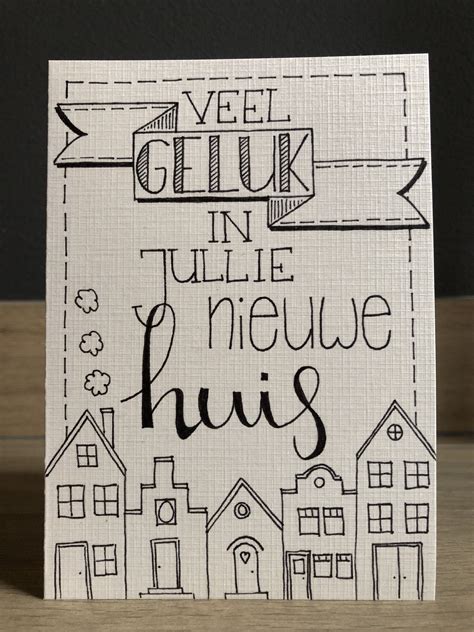 VEEL
GELUK
IN
JULLIE
nieuwe
huis